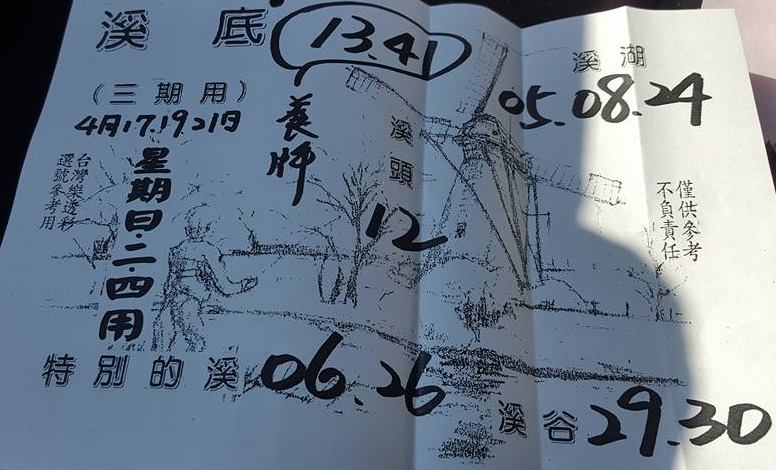 溪底
13.41
養牌
(三期用)
4月17.19.21日
星期日.二.四用
台灣樂透彩
選號參考用
溪頭
12
溪湖
05.08.24
僅供參考
不負責任
特別的溪
06.26
溪谷
29.30